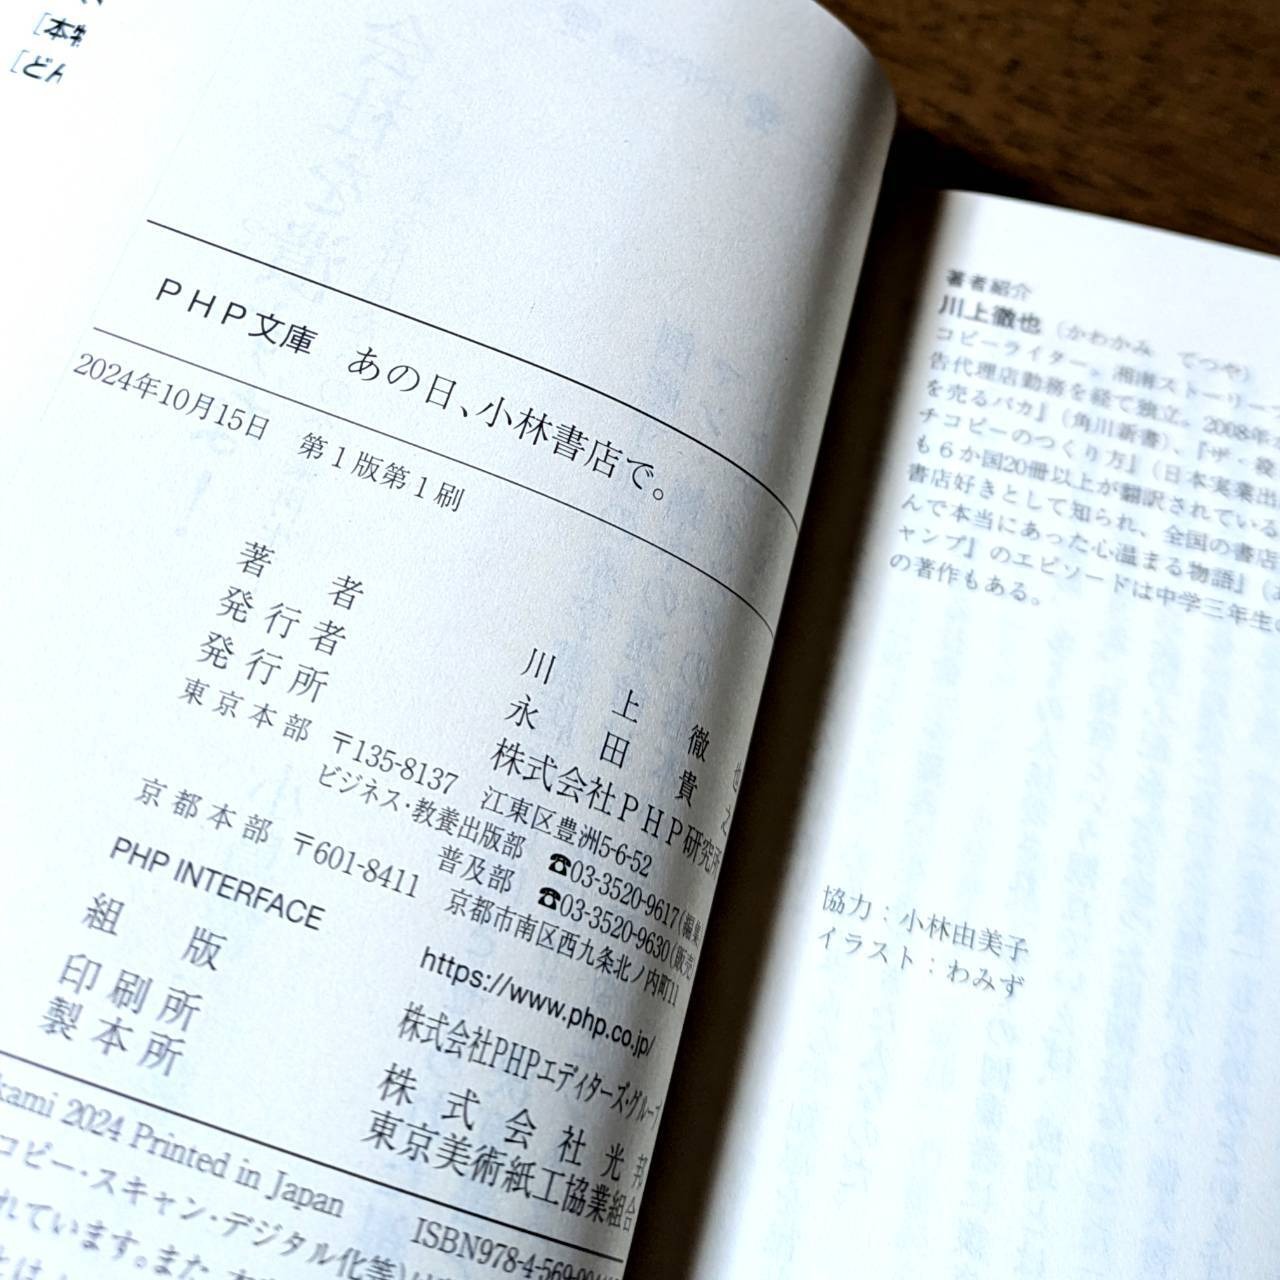 [本
[どん
PHP文庫 あの日、小林書店で。
2024年10月15日 第1版第1刷
著者 川上徹也
発行者 永田貴之
発行所 株式会社PHP研究所
東京本部 〒135-8137 江東区豊洲5-6-52
ビジネス・教養出版部 ☎03-3520-9617(編集
普及部 ☎03-3520-9630(販売
京都本部 〒601-8411 京都市南区西九条北ノ内町11
PHP INTERFACE https://www.php.co.jp/
組版 株式会社PHPエディターズ・グループ
印刷所 株式会社光邦
製本所 東京美術紙工協業組合
kami 2024 Printed in Japan ISBN978-4-569-90
コピー・スキャン・デジタル化等)は
れています。また、
著者紹介
川上徹也(かわかみ てつや)
コピーライター。湘南ストーリー
告代理店勤務を経て独立。2008年
を売るバカ』(角川新書)、『ザ・殺
チコピーのつくり方』(日本実業出
も6か国20冊以上が翻訳されている
書店好きとして知られ、全国の書店
んで本当にあった心温まる物語』(
ャンプ』のエピソードは中学三年生の
の著作もある。
協力：小林由美子
イラスト：わみず